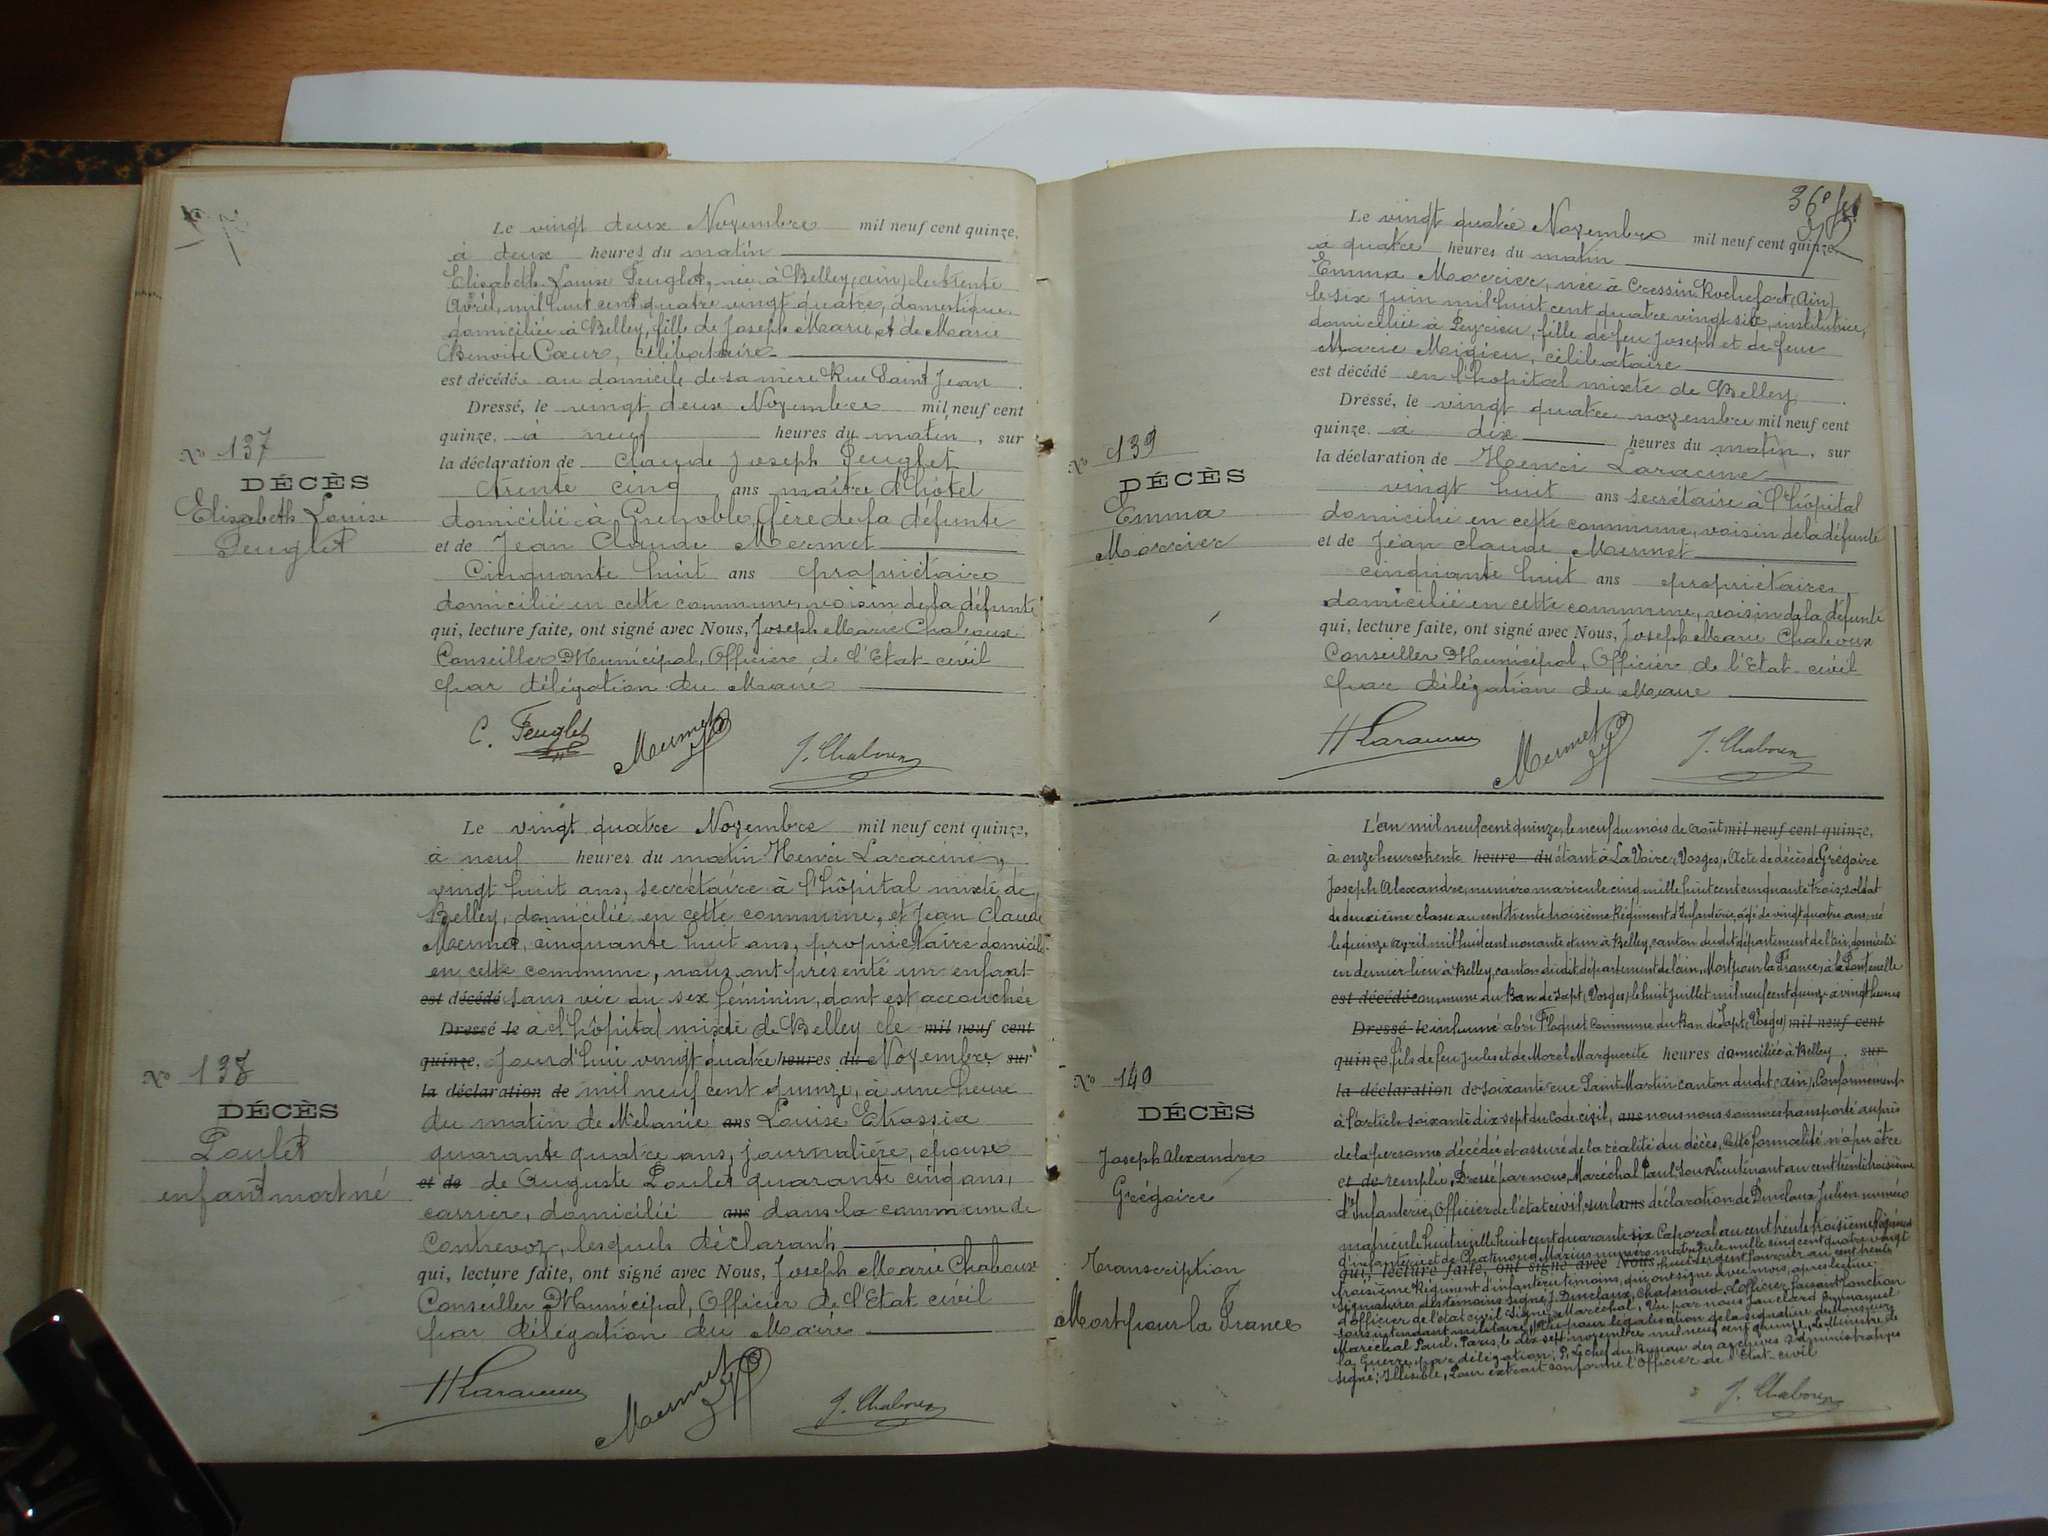 Le vingt deux Novembre mil neuf cent quinze,
à deux heures du matin
Elisabeth Louise Feuglet, née à Belley (ain) le trente
Avril, mil huit cent quatre vingt quatre, domestique
domiciliée à Belley, fille de Joseph Marie, et de Marie
Benoite Cœur, célibataire
est décédée au domicile de sa mère Rue Saint Jean
Dressé, le vingt deux Novembre mil neuf cent
quinze, à neuf heures du matin, sur
la déclaration de Claude Joseph Feuglet
trente cinq ans maître d'hôtel
domicilié à Grenoble, frère de la défunte
et de Jean Claude Mermet
Cinquante huit ans propriétaire
domicilié en cette commune, voisin de la défunte
qui, lecture faite, ont signé avec Nous, Joseph Marie Chaboux
Conseiller Municipal, Officier de l'Etat-civil
par délégation du Maire
No 137
DÉCÈS
Elisabeth Louise
Feuglet
C. Feuglet Mermet J. Chaboux
Le vingt quatre Novembre mil neuf cent quinze,
à neuf heures du matin Henri Laracine,
vingt huit ans, secrétaire à l'hôpital mixte de
Belley, domicilié en cette commune, et Jean Claude
Mermet, cinquante huit ans, propriétaire domicilié
en cette commune, nous ont présenté un enfant
est décédé sans vie du sex féminin, dont est accouchée
Dressé le à l'hôpital mixte de Belley le mil neuf cent
quinze, jourd'hui vingt quatre heures du Novembre sur
la déclaration de mil neuf cent quinze, à une heure
du matin de Mélanie ans Louise Etrassia
quarante quatre ans, journalière, épouse
et de de Auguste Poulet quarante cinq ans,
carrier, domicilié ans dans la commune de
Contrevoz, lesquels déclarants
qui, lecture faite, ont signé avec Nous, Joseph Marie Chaboux
Conseiller Municipal, Officier de l'Etat-civil
par délégation du Maire
No 138
DÉCÈS
Poulet
enfant mort né
H Laracine Mermet J. Chaboux
36e
Le vingt quatre Novembre mil neuf cent quinze
à quatre heures du matin
Emma Morrier, née à Cressin Rochefort (Ain)
le six Juin mil huit cent quatre vingt six, institutrice,
domiciliée à Peyrieu, fille de feu Joseph et de feue
Marie Migieu, célibataire
est décédé en l'hôpital mixte de Belley
Dressé, le vingt quatre novembre mil neuf cent
quinze, à dix heures du matin, sur
la déclaration de Henri Laracine
vingt huit ans secrétaire à l'hôpital
domicilié en cette commune, voisin de la défunte
et de Jean Claude Mermet
cinquante huit ans propriétaire,
domicilié en cette commune, voisin de la défunte
qui, lecture faite, ont signé avec Nous, Joseph Marie Chaboux
Conseiller Municipal, Officier de l'Etat-civil
par délégation du Maire
No 139
DÉCÈS
Emma
Morrier
H Laracine Mermet J. Chaboux
L'an mil neuf cent quinze, le neuf du mois de Août mil neuf cent quinze,
à onze heures trente heure du étant à La Voivre (Vosges), Acte de décès de Grégoire
Joseph Alexandre, numéro matricule cinq mille huit cent cinquante trois, soldat
de deuxième classe au cent trente troisième Régiment d'Infanterie, âgé de vingt quatre ans, né
le quinze avril mil huit cent nonante et un à Belley, canton dudit département de l'Ain, domicilié
en dernier lieu à Belley, canton dudit, département de l'ain, Mort pour la France, à la Fontenelle
est décédé commune du Ban de Sapt, (Vosges) le huit Juillet mil neuf cent quinze à vingt heures
Dressé le inhumé abri Ploquet Commune du Ban de Sapt, (Vosges) mil neuf cent
quinze, fils de feu Jules et de Morel Marguerite heures domiciliée à Belley, sur
la déclaration de soixante rue Saint Martin canton dudit (ain), Conformément
à l'article soixante dix sept du Code civil, ans nous nous sommes transporté auprès
de la personne décédée et assuré de la réalité du décès, Cette formalité n'a pu être
et de remplie, Dressé par nous, Maréchal Paul, Sous Lieutenant au cent trente troisième
d'Infanterie, Officier de l'état civil, sur la ans déclaration de Dinclaux Julien numéro
matricule huit mille huit cent quarante six Caporal au cent trente troisième Régiment
d'infanterie et de Chatenoud Marius numéro matricule mille cinq cent quatre vingt
qui, lecture faite, ont signé avec Nous huit Sergent fourrier au cent trente
troisième Régiment d'infanterie témoins, qui ont signé avec moi, après lecture
signatures des témoins Signé: J. Dinclaux, Chatenoud, L'officier faisant fonction
d'Officier de l'état civil Signé: Maréchal, Vu par nous Emmanuel
sous intendant militaire, pour légalisation de la signature de Monsieur
Maréchal Paul, Paris, le dix sept novembre mil neuf cent quinze, Le Ministre de
la Guerre, par délégation, P. Le chef du Bureau des archives administratives
signé: Illisible, Pour extrait conforme l'Officier de l'Etat-civil
No 140
DÉCÈS
Joseph Alexandre
Grégoire
Transcription
Mort pour la France
J. Chaboux